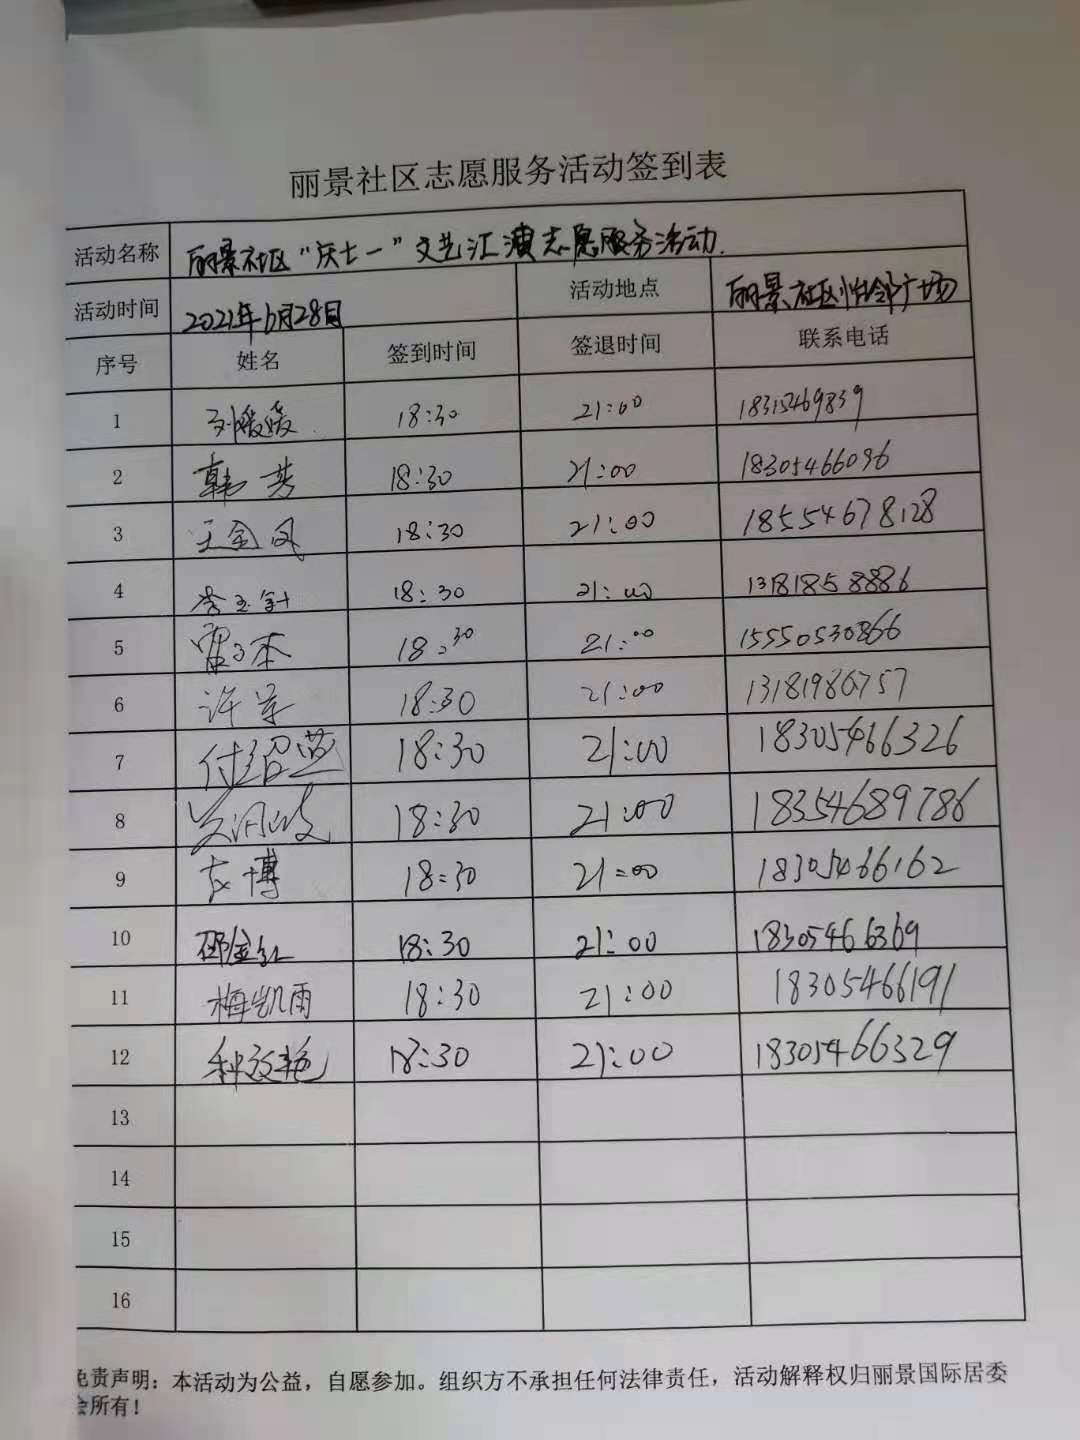 丽景社区志愿服务活动签到表
活动名称 丽景社区“庆七一”文艺汇演志愿服务活动.
活动时间 2021年6月28日 活动地点 丽景社区 邻广场
序号 姓名 签到时间 签退时间 联系电话
1 刘媛媛 18:30 21:00 18315469839
2 韩芳 18:30 21:00 18305466096
3 王金凤 18:30 21:00 18554678128
4 李玉针 18:30 21:00 13181858886
5 霍子杰 18:30 21:00 15550530866
6 许军 18:30 21:00 13181986757
7 付绍燕 18:30 21:00 18305466326
8 18:30 21:00 18354689786
9 博 18:30 21:00 18305466162
10 邵金红 18:30 21:00 18305466369
11 梅凯雨 18:30 21:00 18305466191
12 种效艳 18:30 21:00 18305466329
13
14
15
16
免责声明：本活动为公益，自愿参加。组织方不承担任何法律责任，活动解释权归丽景国际居委
会所有！